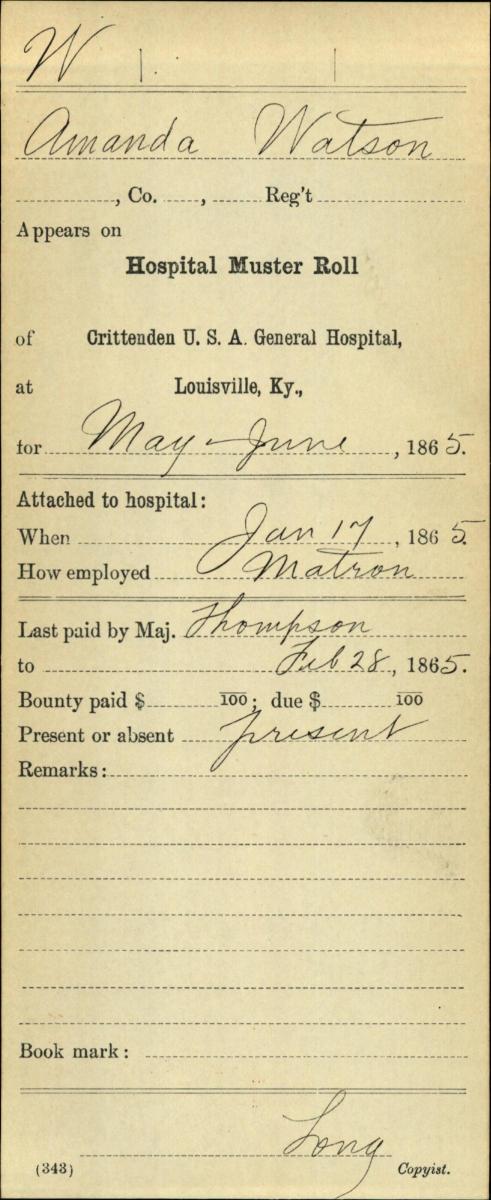 W
Amanda Watson
, Co. , Reg't
Appears on
Hospital Muster Roll
of Crittenden U. S. A. General Hospital,
at Louisville, Ky.,
for May - June , 1865.
Attached to hospital:
When Jan 17 , 1865.
How employed Matron
Last paid by Maj. Thompson
to Feb 28, 1865.
Bounty paid $ 100; due $ 100
Present or absent present
Remarks:
Book mark:
Long
(343) Copyist.